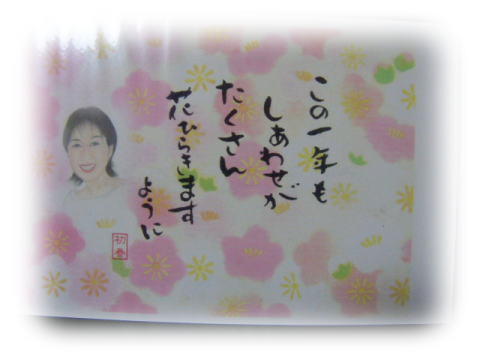 この一年も
しあわせが
たくさん
花ひらきます
ように
初春